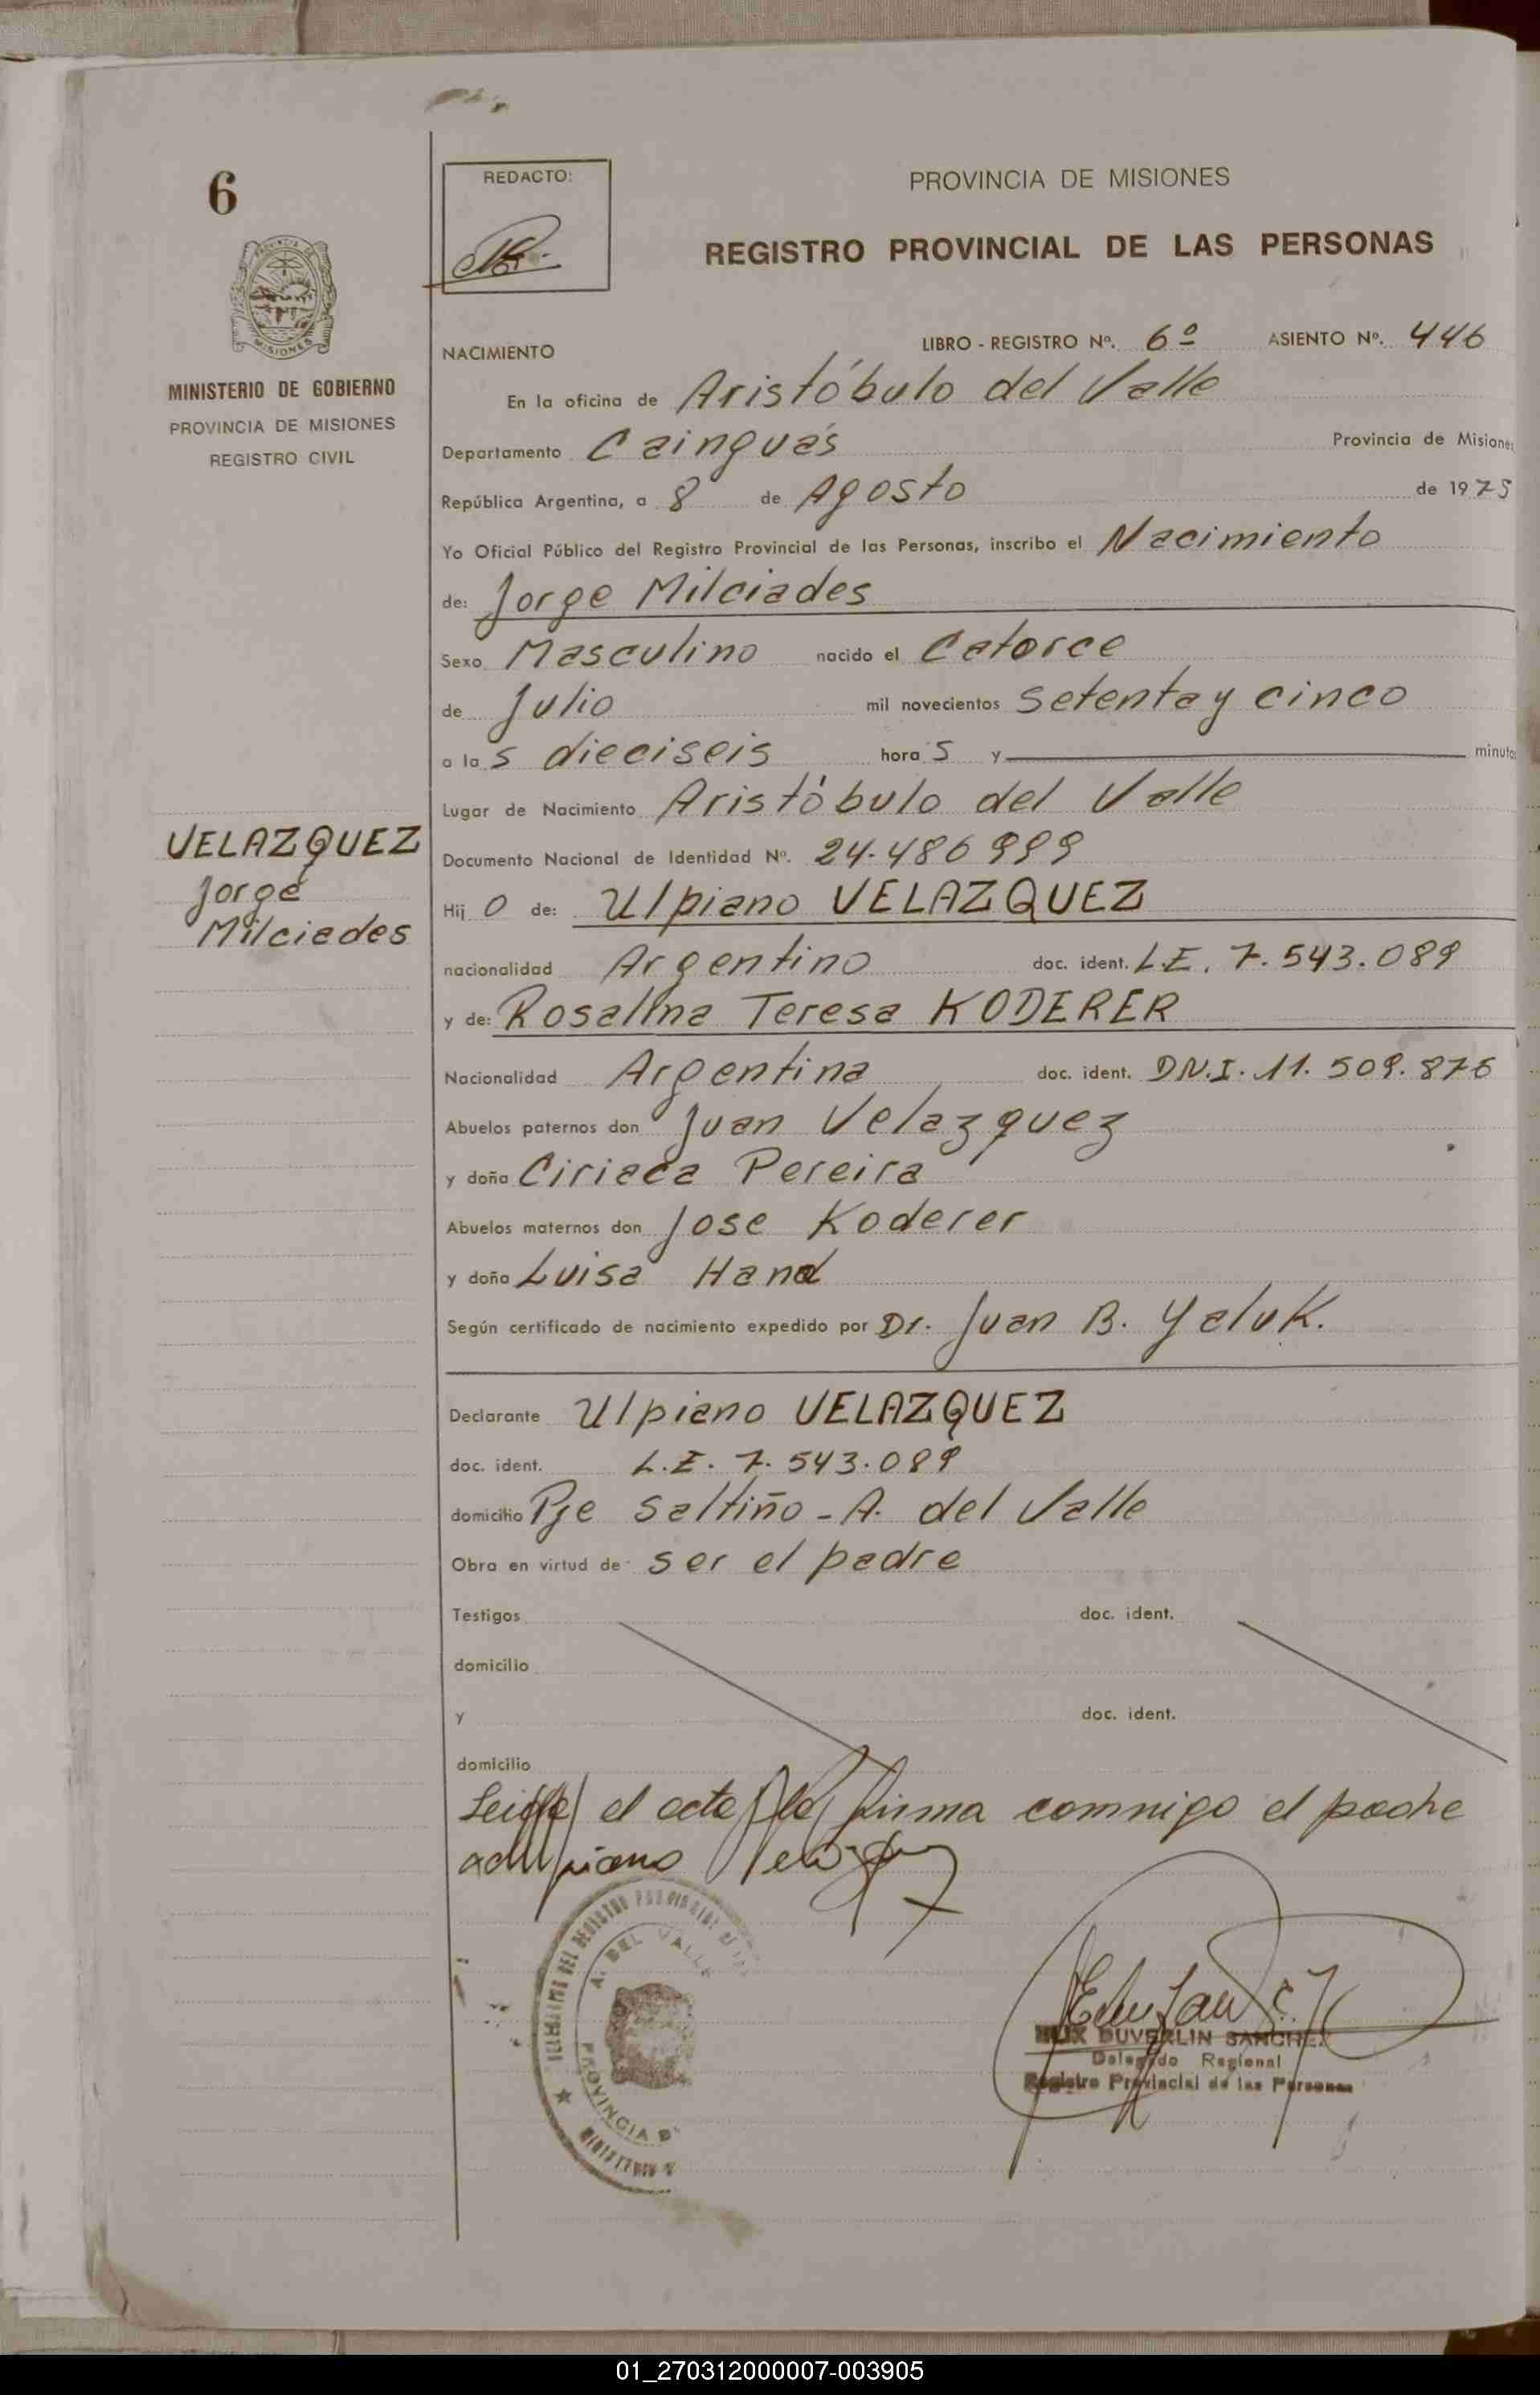 6
REDACTO:
PROVINCIA DE MISIONES
REGISTRO PROVINCIAL DE LAS PERSONAS
MISIONES
MINISTERIO DE GOBIERNO
PROVINCIA DE MISIONES
REGISTRO CIVIL
NACIMIENTO LIBRO - REGISTRO Nº. 6º ASIENTO Nº. 446
En la oficina de Aristóbulo del Valle
Departamento Cainguás Provincia de Misiones
República Argentina, a 8 de Agosto de 1975
Yo Oficial Público del Registro Provincial de las Personas, inscribo el Nacimiento
de: Jorge Milciades
Sexo Masculino nacido el Catorce
de Julio mil novecientos setenta y cinco
a las dieciseis horas y minutos
Lugar de Nacimiento Aristóbulo del Valle
VELAZQUEZ
Jorge
Milciades
Documento Nacional de Identidad Nº. 24.486 999
Hijo de: Ulpiano VELAZQUEZ
nacionalidad Argentino doc. ident. L.E. 7.543.089
y de: Rosalina Teresa KODERER
Nacionalidad Argentina doc. ident. D.N.I. 11.509.876
Abuelos paternos don Juan Velazquez
y doña Ciriaca Pereira
Abuelos maternos don Jose Koderer
y doña Luisa Hand
Según certificado de nacimiento expedido por Dr. Juan B. Yaluk.
Declarante Ulpiano VELAZQUEZ
doc. ident. L.E. 7.543.089
domicilio Pje Saltiño - A. del Valle
Obra en virtud de ser el padre
Testigos doc. ident.
domicilio
y doc. ident.
domicilio
Leida el acta la firma conmigo el padre
A. DEL VALLE
PROVINCIA D
DUVERLIN SANCHEZ
Delegado Regional
Registro Provincial de las Personas
01_270312000007-003905